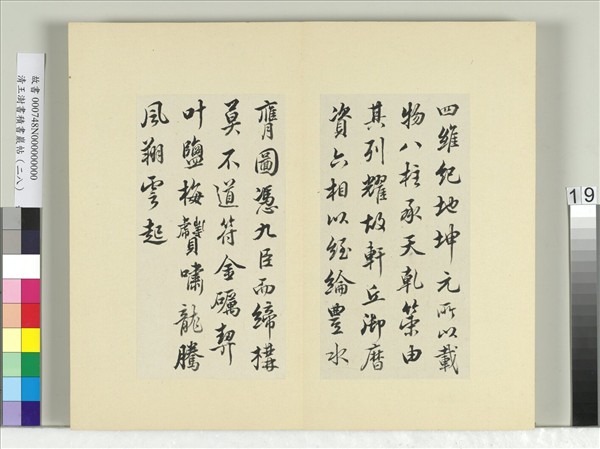 四維紀地坤元所以載
物八柱承天乾策由
其列耀故軒丘御曆
資六相以經綸豐水
膺圖憑九臣而締構
莫不道符金礪契
叶鹽梅贊嘯龍騰
風翔雲起
故書 000748N000000000
清王澍書積書巖帖(二八)
19